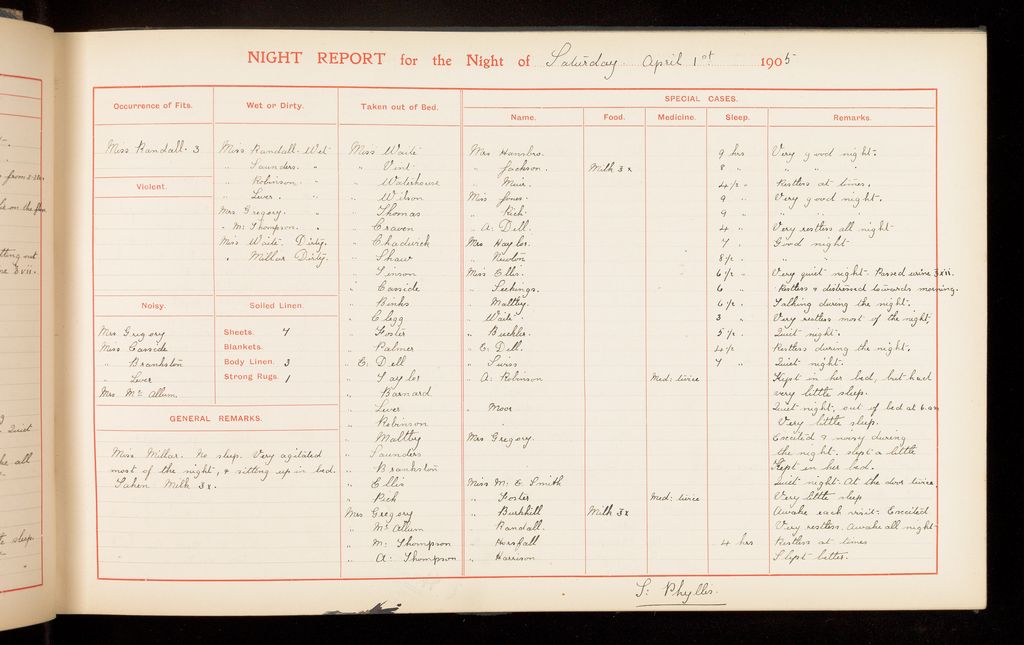 NIGHT REPORT for the Night of Saturday April 1st 1905
Occurrence of Fits.
Miss Randall. 3
Violent.
Noisy.
Mrs Gregory
Miss Casside
" Brankston
" Lever
Mrs Mc Allum.
Wet or Dirty.
Miss Randall. Wet
" Saunders. "
" Robinson. "
" Lever. "
Mrs. Gregory. "
" M: Thompson. "
Miss Waite. Dirty.
" Millar Dirty.
Soiled Linen.
Sheets. 7
Blankets.
Body Linen. 3
Strong Rugs. 1
GENERAL REMARKS.
Miss Millar. No sleep. Very agitated
most of the night, & sitting up in bed.
Taken Milk 3x.
Taken out of Bed.
Miss Waite
" Vint
" Waterhouse
" Wilson
" Thomas
" Craven
" Chadwick
" Shaw
" Tinson
" Casside
" Binks
" Clegg
" Foster
" Palmer
" E: Dell
" Taylor
" Barnard
" Lever
" Robinson
" Maltby
" Saunders
" Brankston
" Ellis
" Rich
Mrs Gregory
" Mc Allum
" M: Thompson
" A: Thompson
SPECIAL CASES.
Name. Food. Medicine. Sleep. Remarks.
Mrs Hansbro. 9 hrs Very good night.
" Jackson. Milk 3x 8 " " " "
" Muir. 4 1/2 " Restless at times.
Miss Jones. 9 " Very good night.
" Rich. 9 " " " "
" A: Dell. 4 " Very restless all night
Mrs Haylor. 7 " Good night
" Newton 8 1/2 " " "
Miss Ellis. 6 1/2 " Very quiet night. Passed urine 3xii.
" Leekings. 6 " Restless & distressed towards morning.
" Maltby. 6 1/2 " Talking during the night.
" Waite. 3 " Very restless most of the night,
" Buckler. 5 1/2 " Quiet night.
" E: Dell. 4 1/2 Restless during the night.
" Swiss 7 " Quiet night.
" A: Robinson Med: twice Kept in her bed, but had
very little sleep.
" Moor Quiet night, out of bed at 6.am
Very little sleep.
Mrs Gregory. Excited & noisy during
the night. slept a little
Kept in her bed.
Miss M: E Smith Quiet night. At the door twice
" Foster Med: twice Very little sleep
" Burkhill Milk 3x Awake each visit. Excited
" Randall. Very restless. Awake all night
" Horsfall 4 hrs Restless at times
" Harrison Slept better.
S: Phyllis.